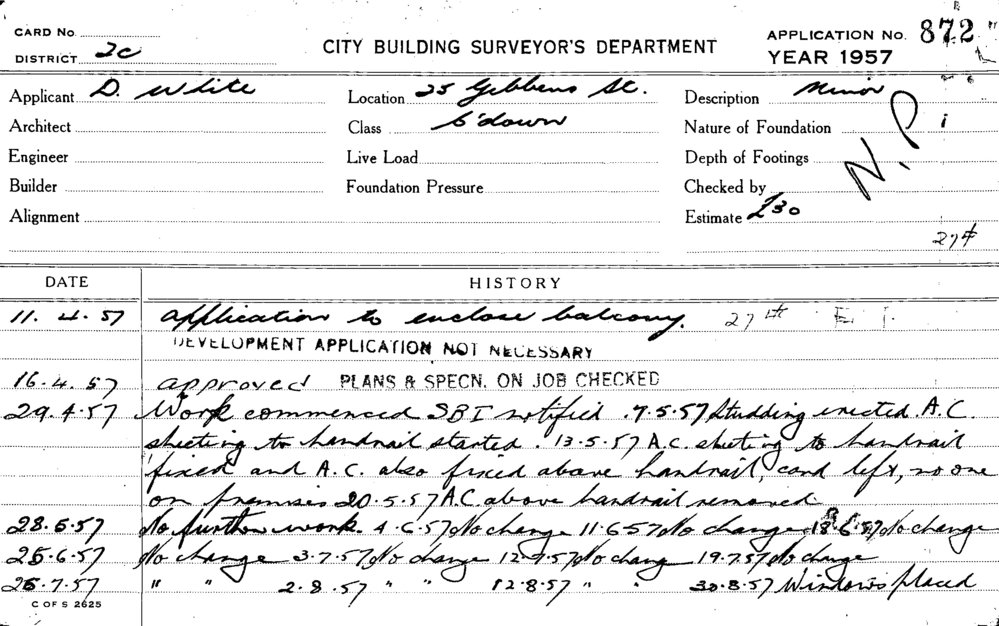 CARD No.
DISTRICT 2c
CITY BUILDING SURVEYOR'S DEPARTMENT
APPLICATION No. 872
YEAR 1957
Applicant D. White
Location 25 Gibbens St.
Description Minor
Architect
Class C'down
Nature of Foundation
N.P
Engineer
Live Load
Depth of Footings
Builder
Foundation Pressure
Checked by
Alignment
Estimate £30
27th
DATE HISTORY
11. 4. 57 Application to enclose balcony. 27th
DEVELOPMENT APPLICATION NOT NECESSARY
16.4.57 approved PLANS & SPECN. ON JOB CHECKED
29.4.57 Work commenced SBI notified. 7.5.57 Studding erected A.C.
sheeting to handrail started. 13.5.57 A.C. sheeting to handrail
fixed and A.C. also fixed above handrail, and left, no one
on premises 20.5.57 A.C. above handrail removed
28.5.57 No further work. 4.6.57 No change 11.6.57 No change 18.6.57 No change
25.6.57 No change 3.7.57 No change 12.7.57 No change 19.7.57 No change
26.7.57 " " 2.8.57 " " 12.8.57 " " 30.8.57 Windows placed
C OF S 2625